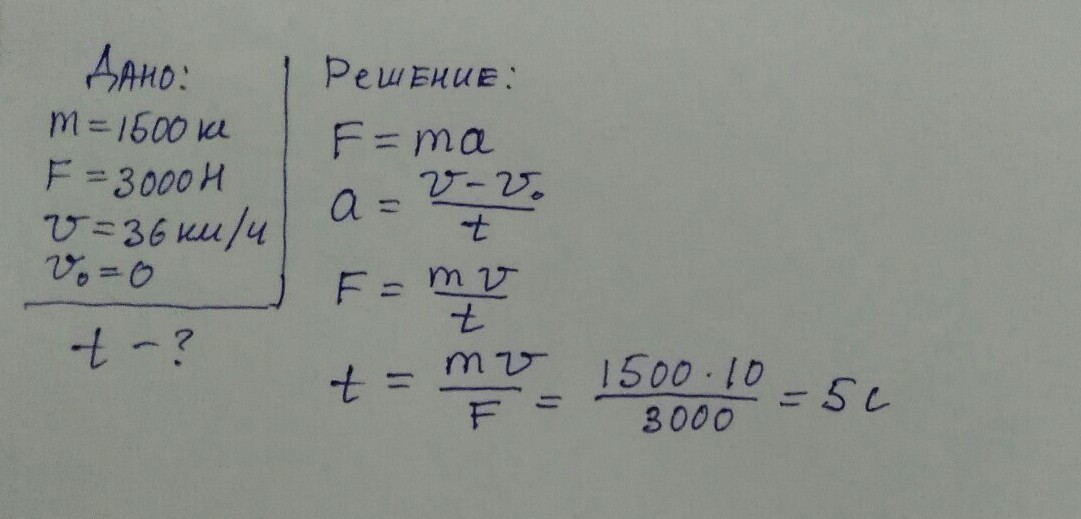 Дано:
m = 1500 кг
F = 3000 Н
v = 36 км/ч
v₀ = 0
t - ?
Решение:
F = ma
a = (v - v₀)/t
F = mv/t
t = mv/F = 1500 · 10/3000 = 5 с